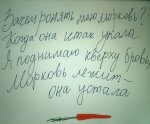 Зачем ронять мою морковь?
Когда она и так упала.
Я поднимаю кверху бровь,
Морковь лежит –
она устала